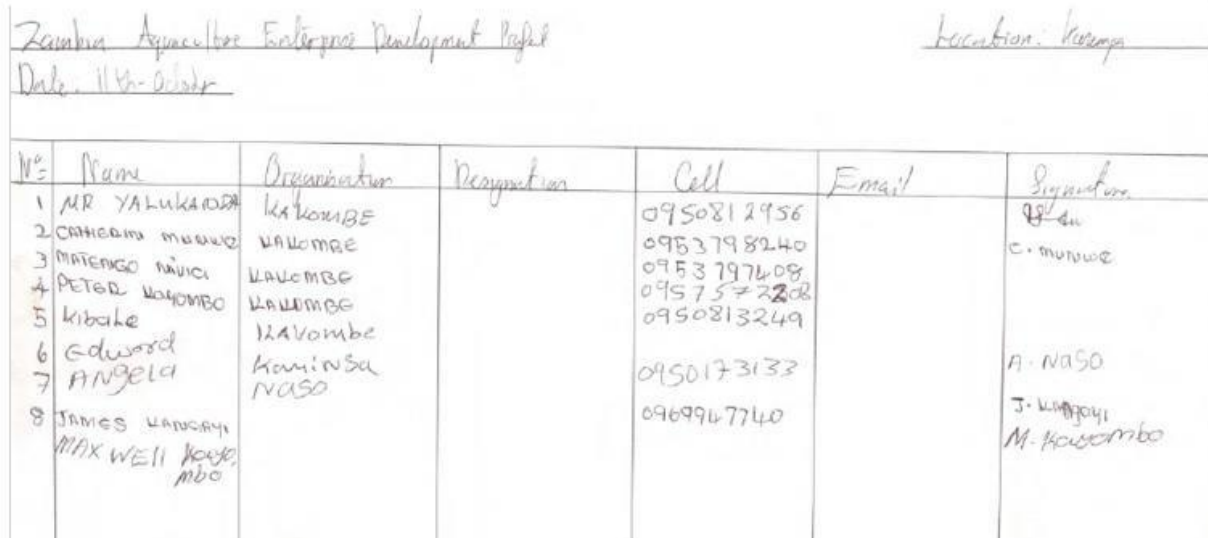 Zambia Aquaculture Enterprise Development Location: Kasempa
Date: 11th-October
Nº Name Organisation Designation Cell Email Signature
1 MR YALUKANDA KAKOMBE 0950812956
2 CATHERINE MUNUWE KAKOMBE 0953798240 C. munuwe
3 MATENGO KAKOMBE 0953797408
4 PETER KAYOMBO KAKOMBE 0957572208
5 Kibale Kakombe 0950813249
6 Edward KaminSa
7 ANgela NASO 0950173133 A. NaSO
8 JAMES KANGAYI 0969947740 J. KANgayi
MAX WEll Kayo. M. Kayombo
mbo